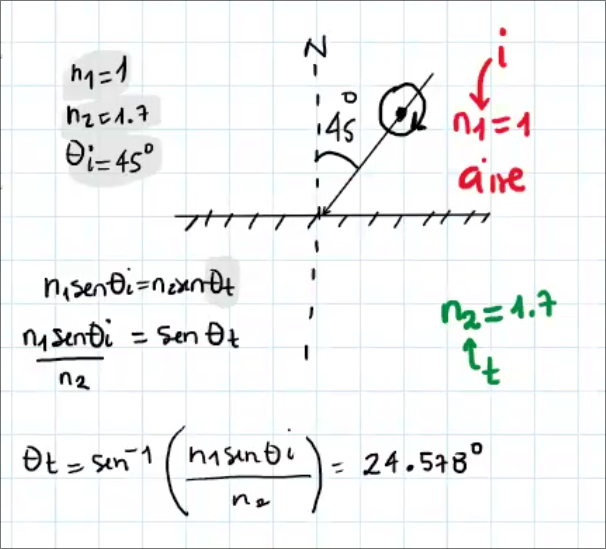 N
n₁=1
n₂=1.7
θi=45°
45°
i
n₁=1
aire
n₁senθi=n₂senθt
n₁senθi / n₂ = senθt
n₂=1.7
t
θt=sen⁻¹(n₁senθi / n₂) = 24.578°